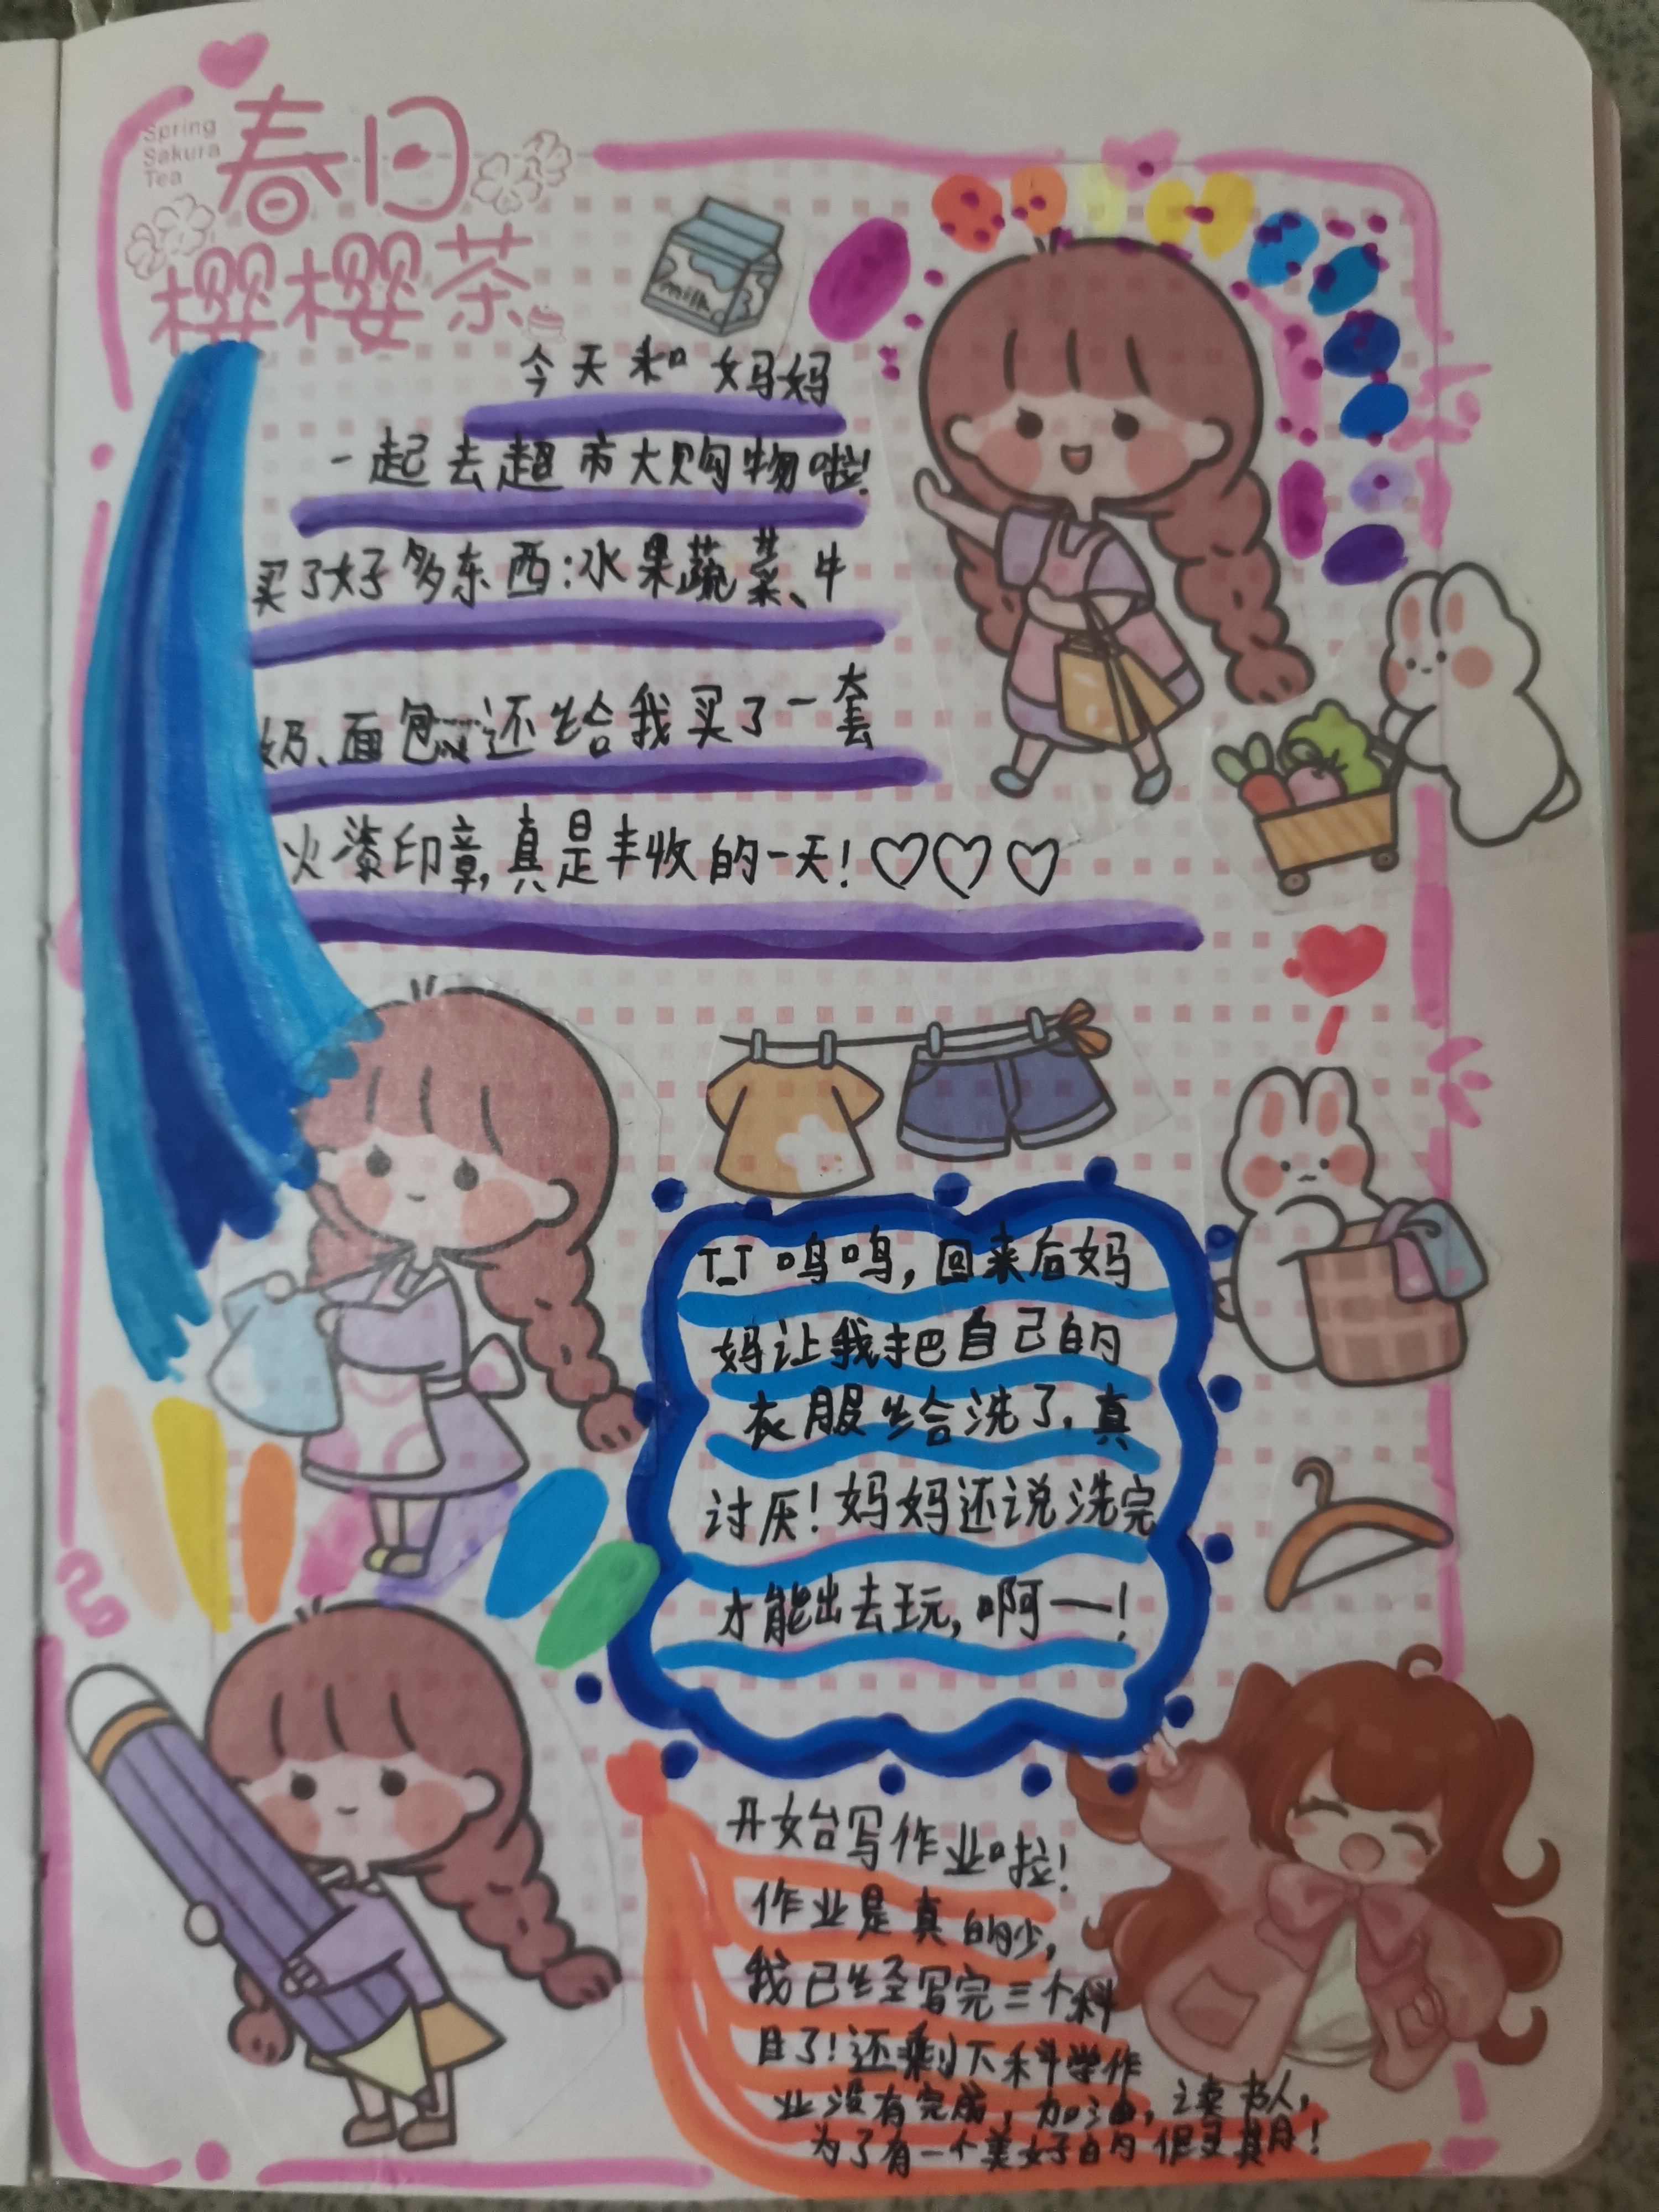 Spring
Sakura
Tea
春日
樱樱茶
milk
今天和妈妈
一起去超市大购物啦!
买了好多东西:水果蔬菜、牛
奶、面包……还给我买了一套
火漆印章,真是丰收的一天!♡♡♡
T_T 呜呜,回来后妈
妈让我把自己的
衣服给洗了,真
讨厌!妈妈还说洗完
才能出去玩,啊——!
开始写作业啦!
作业是真的少,
我已经写完三个科
目了!还剩下科学作
业没有完成,加油,读书人,
为了有一个美好的假期!